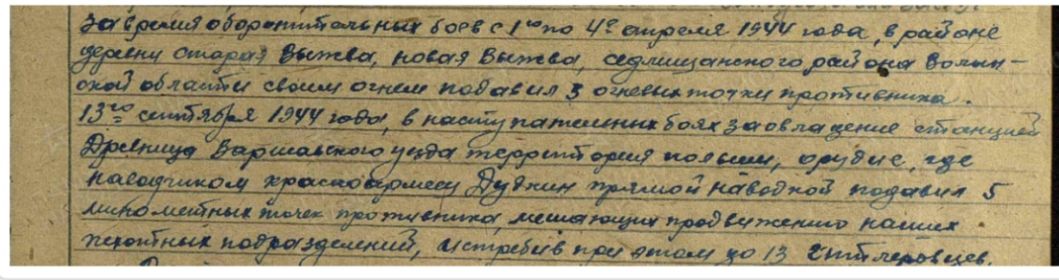 За время оборонительных боев с 1го по 4е апреля 1944 года, в районе
деревни старая Выжва, новая Выжва, седлищанского района Волын-
ской области своим огнем подавил 3 огневых точки противника.
13го сентября 1944 года, в наступательных боях за овладение станцией
Древница Варшавского уезда территория польши, орудие, где
наводчиком красноармеец Дудкин прямой наводкой подавил 5
минометных точек противника, мешающих продвижению наших
пехотных подразделений, истребив при этом до 13 гитлеровцев.